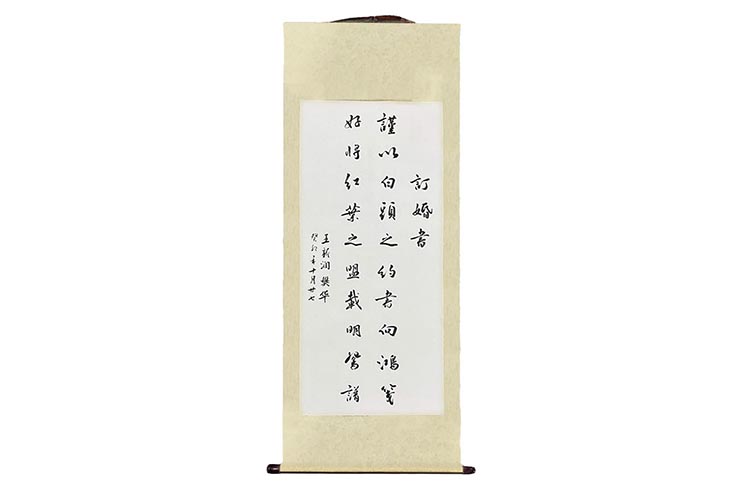 訂婚書
謹以白頭之約書向鴻箋
好将紅葉之盟載明鴛譜
王新润 樊华
癸卯年十月廿七